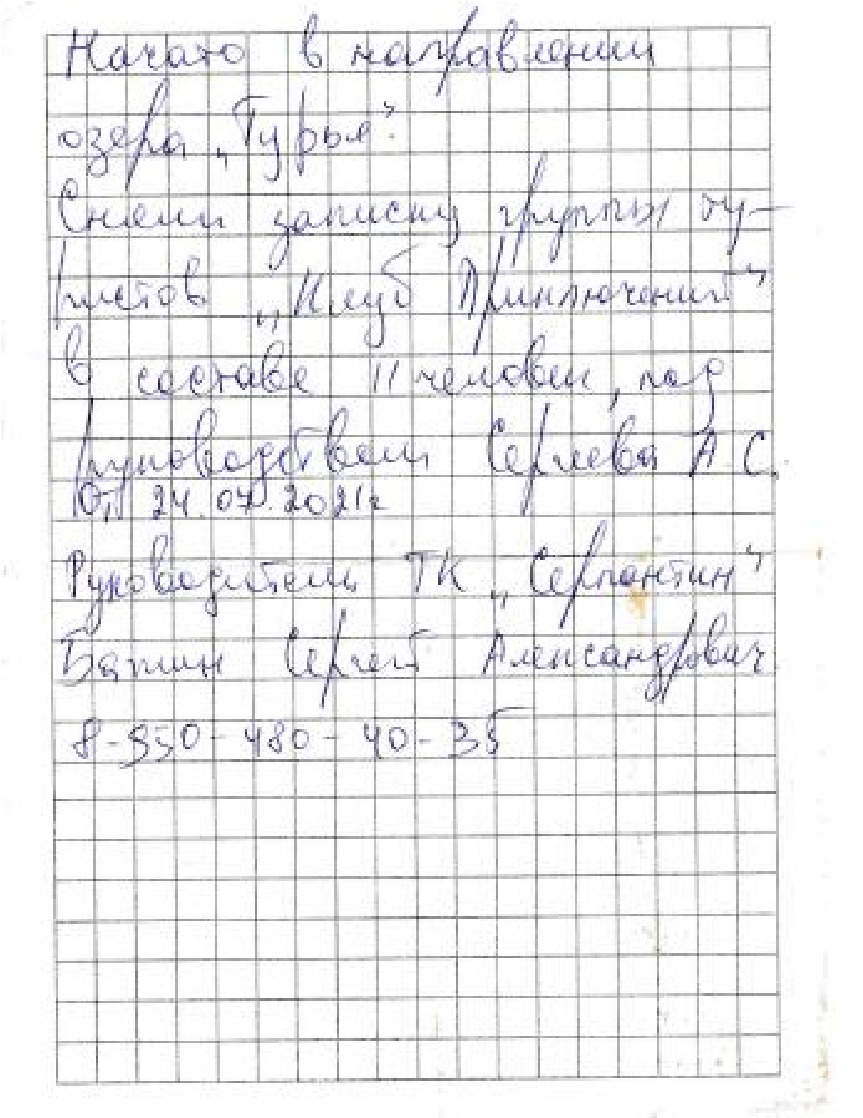 Начато в направлении
озера „Турье".
Сняли записку группы ту-
ристов „Клуб Приключений"
в составе 11 человек, под
руководством Сергеева А.С.
От 24.07.2021г
Руководитель ТК „Серпантин"
Сергей Александрович
8-950-480-40-35